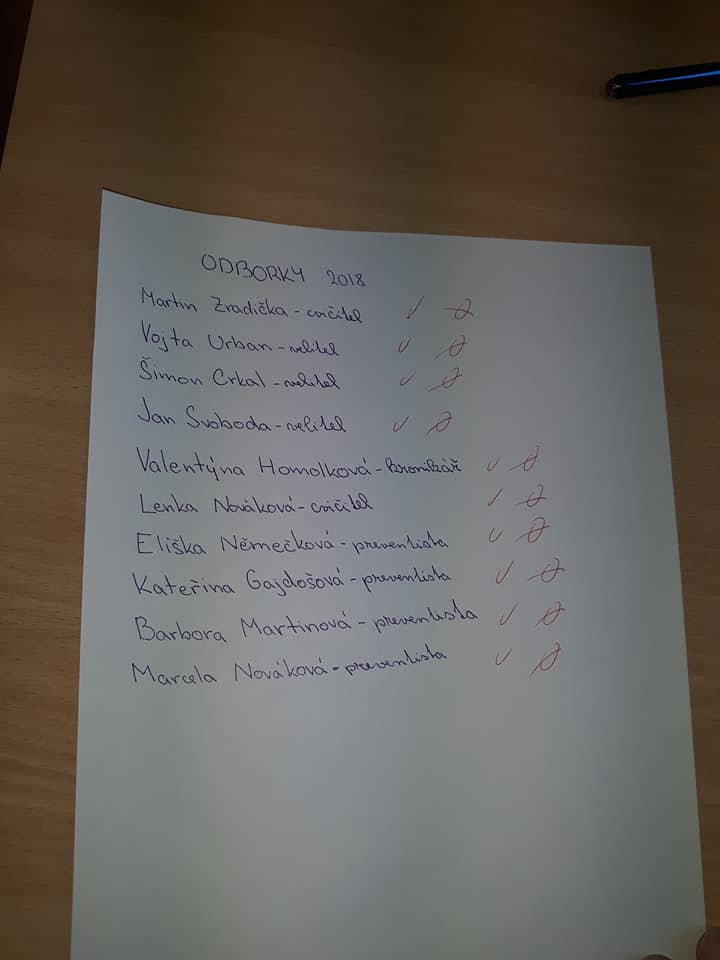 ODBORKY 2018
Martin Zradička - cvičitel ✓
Vojta Urban - velitel ✓
Šimon Crkal - velitel ✓
Jan Svoboda - velitel ✓
Valentýna Homolková - kronikář ✓
Lenka Nováková - cvičitel ✓
Eliška Němečková - preventista ✓
Kateřina Gajdošová - preventista ✓
Barbora Martinová - preventista ✓
Marcela Nováková - preventista ✓